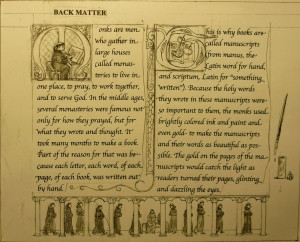 BACK MATTER
onks are men
who gather in
large houses
called monas-
teries to live in
one place, to pray, to work together,
and to serve God. In the middle ages,
several monasteries were famous not
only for how they prayed, but for
what they wrote and thought. It
took many months to make a book.
Part of the reason for that was be-
cause each letter, each word, of each
page, of each book, was written out
by hand.
his is why books are
called manuscripts
from manus, the
Latin word for hand,
and scriptum, Latin for "something
written"). Because the holy words
they wrote in these manuscripts were
so important to them, the monks used
brightly colored ink and paint and
even gold- to make the manuscripts
and their words as beautiful as pos-
sible. The gold on the pages of the ma-
nuscripts would catch the light as
readers turned their pages, glinting
and dazzling the eyes.